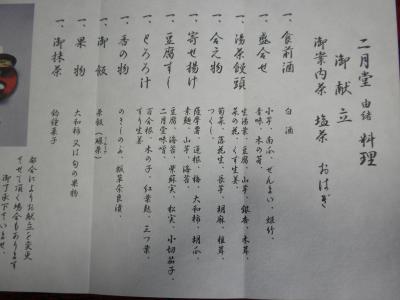 二月堂 由緒 料理
御献立
御案内茶 塩茶 おはぎ
一、食前酒 白酒
一、盛合せ 小芋、南瓜、ぜんまい、姫竹、
香味、木の芽、
一、湯茶饅頭 生湯葉、豆腐、山芋、銀杏、木茸、
菜の花、くず生姜、
一、合え物 蒟蒻、菜落花生、春芽、胡麻、椎茸、
つくし、
一、寄せ揚げ 薩摩薯、蓮根、梅、大和柿、胡瓜、
素麺、山芋、海苔、
一、豆腐すし 豆腐、海苔、紫蘇実、松実、小切茄子、
二月堂味噌、
一、とろろ汁 百合根、木の子、紅葉麩、三つ葉、
すり生姜
一、香の物 のきしのぶ、瓢草奈良漬、
一、御飯 茶飯（碾茶）
一、果物 大和柿 又は旬の果物
一、御抹茶 釣鐘菓子
都合によりお献立を変更
させて頂く場合もあります
御了承下さいませ、